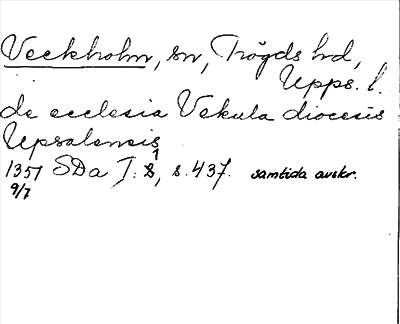 Veckholm, sn, Trögds hd,
Upps. l.
de ecclesia Vekula diocesis
Upsalensis
1351 SDa I: 1, s. 437. samtida avskr.
9/7